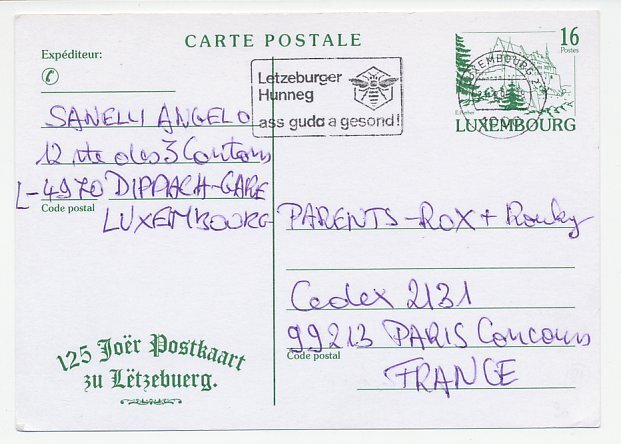 CARTE POSTALE
Expéditeur:
SANELLI ANGELO
12, rte des 3 Cantons
L-4970 DIPPACH-GARE
Code postal
LUXEMBOURG
Letzeburger
Hunneg
ass gudd a gesond!
16
Postes
LUXEMBOURG 2
LUXEMBOURG
PARENTS-ROX + Rouky
Cedex 2131
99213 PARIS Concours
Code postal
FRANCE
125 Joër Postkaart
zu Lëtzebuerg.